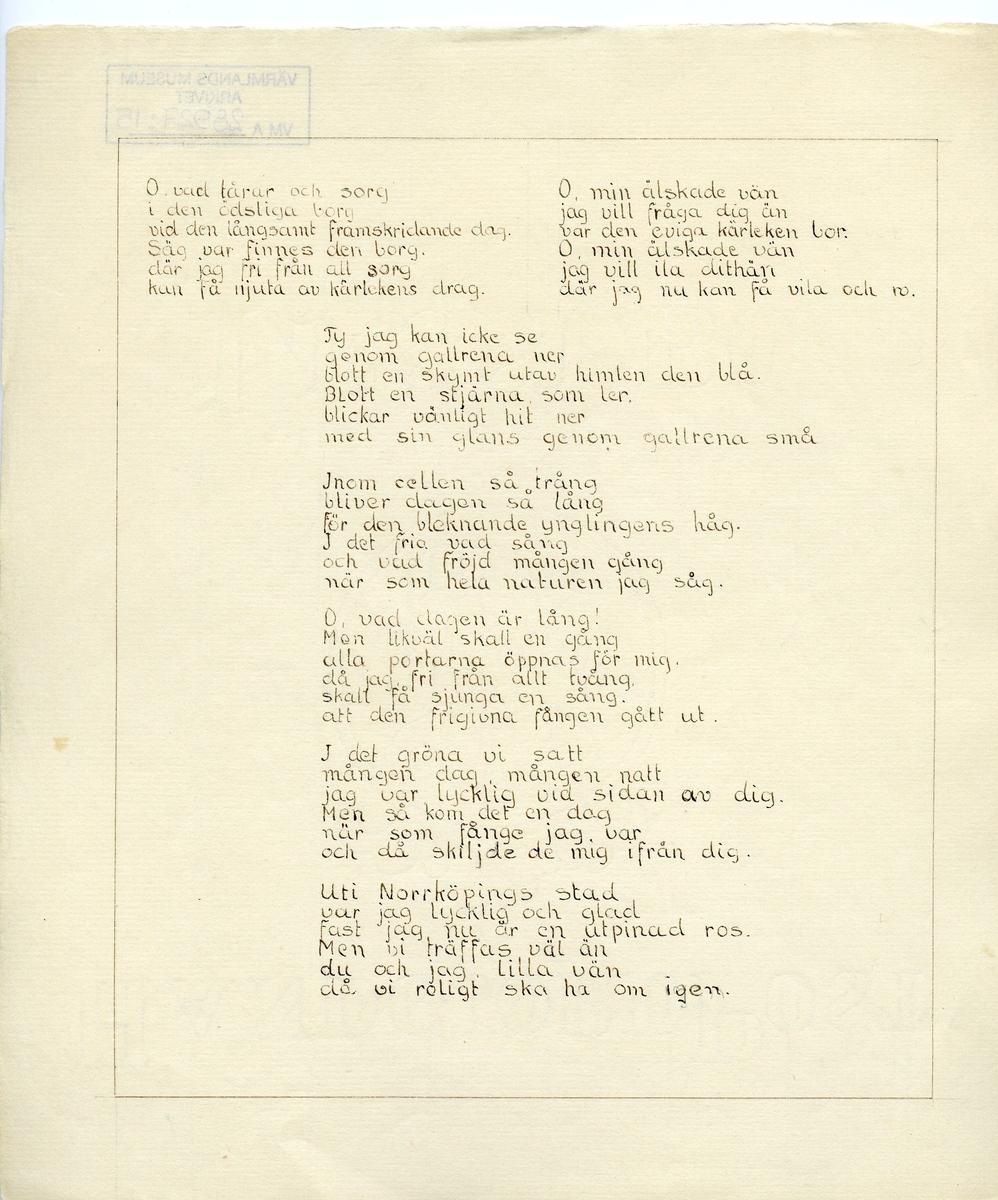 VÄRMLANDS MUSEUM
ARKIVET
VM A 26923:15
O. vad tårar och sorg
i den ödsliga borg
vid den långsamt framskridande dag.
Säg var finnes den borg.
där jag fri från all sorg
kan få njuta av kärlekens drag.
O, min älskade vän
jag vill fråga dig än
var den eviga kärleken bor.
O, min älskade vän
jag vill ila dithän
där jag nu kan få vila och ro.
Ty jag kan icke se
genom gallrena ner
blott en skymt utav himlen den blå.
Blott en stjärna, som ler,
blickar vänligt hit ner
med sin glans genom gallrena små
Inom cellen så trång
bliver dagen så lång
för den bleknande ynglingens håg.
I det fria vad sång
och vad fröjd mången gång
när som hela naturen jag såg.
O, vad dagen är lång!
Men likväl skall en gång
alla portarna öppnas för mig.
då jag, fri från allt tvång,
skall få sjunga en sång.
att den frigivna fången gått ut.
I det gröna vi satt
mången dag, mången natt
jag var lycklig vid sidan av dig.
Men så kom det en dag
när som fånge jag var
och då skiljde de mig ifrån dig.
Uti Norrköpings stad
var jag lycklig och glad
fast jag nu är en utpinad ros.
Men vi träffas väl än
du och jag, lilla vän
då vi roligt ska ha om igen.